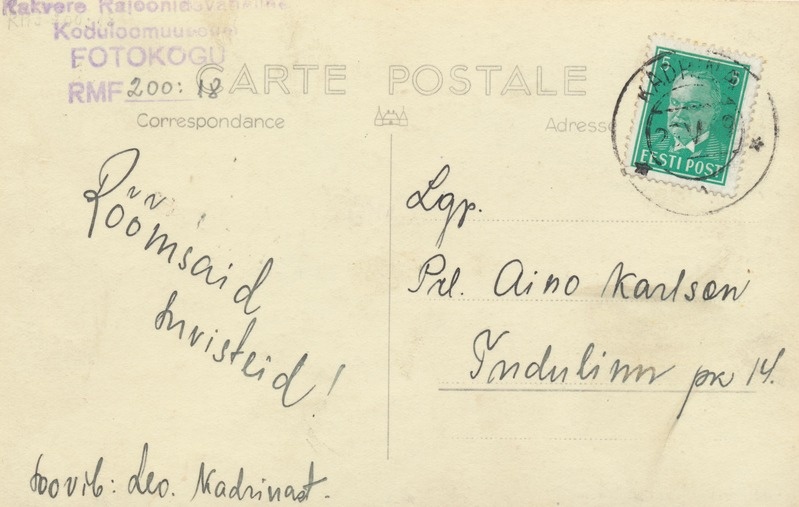 Rakvere Rajoonidevaheline
Koduloomuuseum
FOTOKOGU
RMF 200: 18
CARTE POSTALE
Correspondance
Adresse
5 5
EESTI POST
KADRINA
Rõõmsaid
suvisteid!
soovib: Leo. Kadrinast.
Lgp.
Prl. Aino Karlson
Indulinn pk 14.